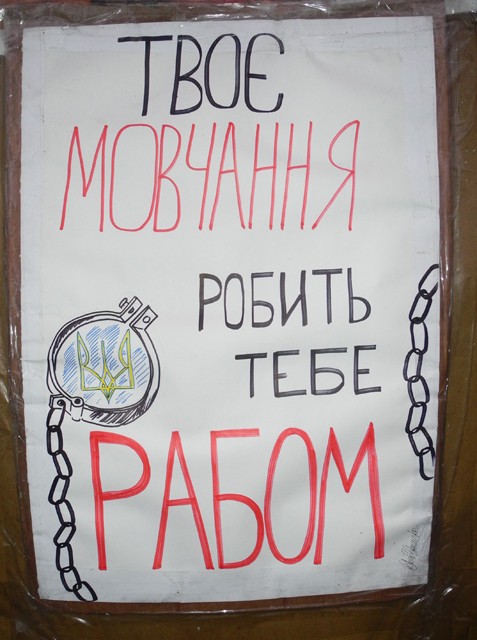 ТВОЄ
МОВЧАННЯ
РОБИТЬ
ТЕБЕ
РАБОМ